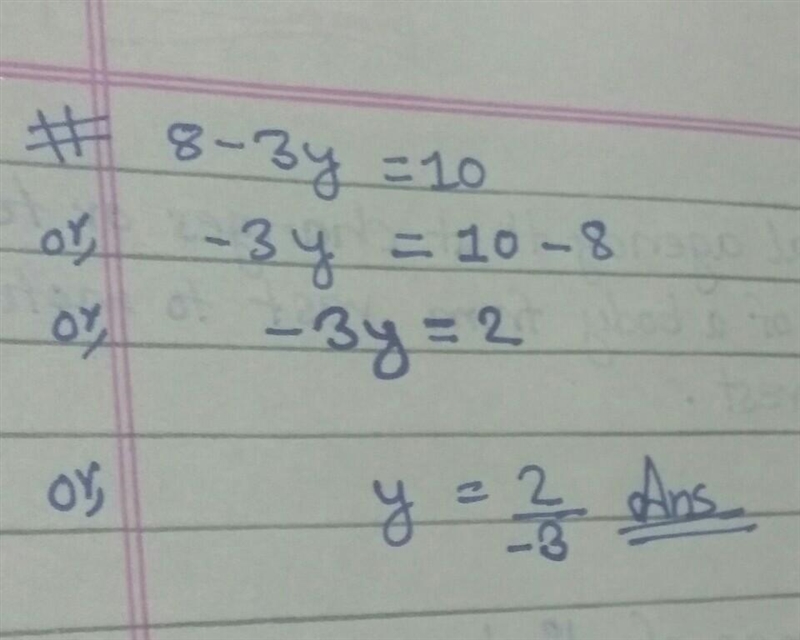 # 8 - 3y = 10
or, - 3y = 10 - 8
or, - 3y = 2
or, y = 2/-3 Ans